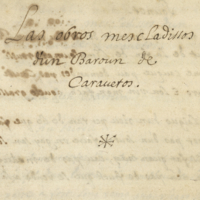 Las obros mescladissos
d'un Baroun de
Caravetos.